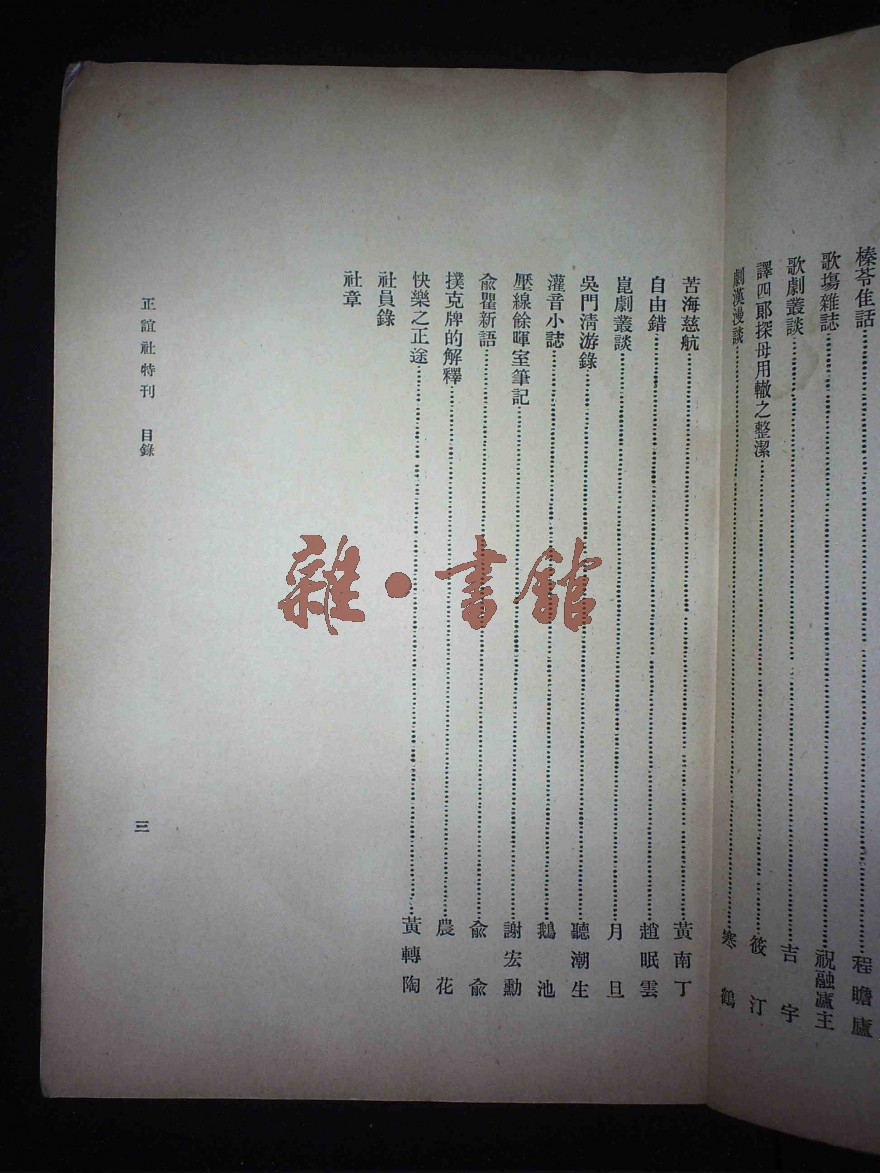 榛苓隹話……程瞻廬
歌場雜誌……祝融廬主
歌劇叢談……吉宇
譯四郞探母用轍之整潔……筱汀
劇漢漫談……寒鶴
苦海慈航……黃南丁
自由錯……趙眠雲
崑劇叢談……月旦
吳門清游錄……聽潮生
灌音小誌……鵝池
壓線餘暉室筆記……謝宏勳
俞瞿新語……俞俞
撲克牌的解釋……農花
快樂之正途……黃轉陶
社員錄
社章
正誼社特刊 目錄
三
雜·書館